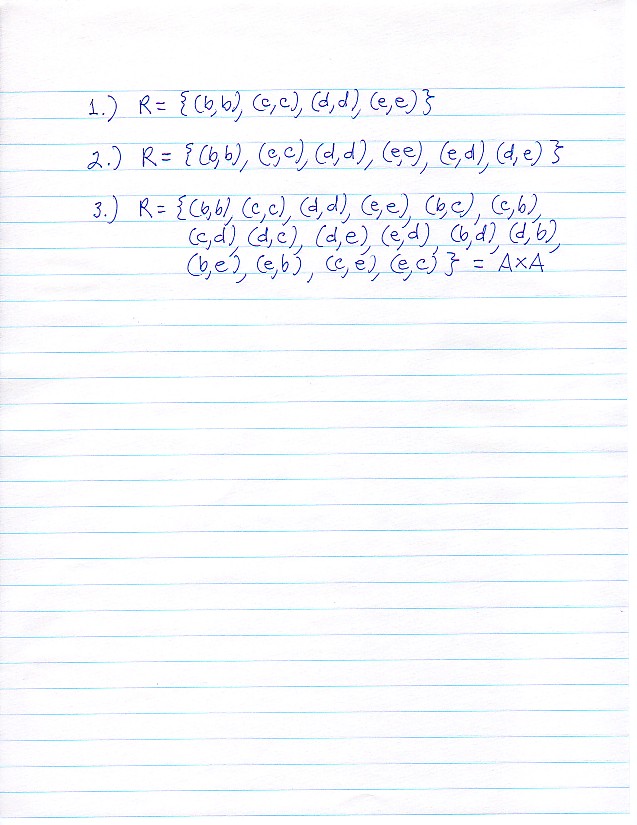 1.) R = {(b,b), (c,c), (d,d), (e,e)}
2.) R = {(b,b), (c,c), (d,d), (e,e), (e,d), (d,e)}
3.) R = {(b,b), (c,c), (d,d), (e,e), (b,c), (c,b),
(c,d), (d,c), (d,e), (e,d), (b,d), (d,b),
(b,e), (e,b), (c,e), (e,c)} = A×A